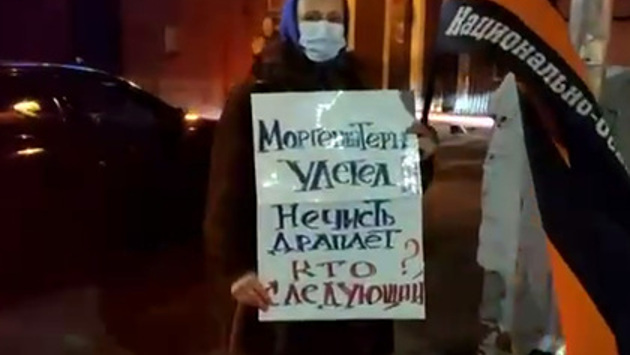 Национально-осв
Моргенштерн
улетел
Нечисть
драпает
кто ?
следующий